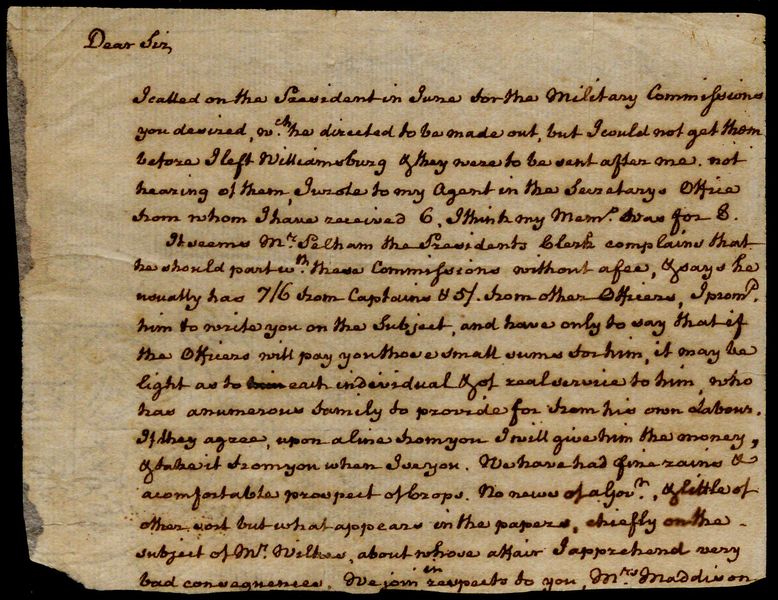 Dear Sir,
I called on the President in June for the Military Commissions
you desired, wch. he directed to be made out, but I could not get them
before I left Williamsburg & they were to be sent after me. not
hearing of them, I wrote to my Agent in the Secretarys Office
from whom I have received 6, I think my Memo. was for 8.
It seems Mr. Pelham the Presidents Clerk complains that
he should part wth. these Commissions without a fee, & says he
usually has 7/6 from Captains & 5/. from other Officers, I promd.
him to write you on the Subject, and have only to say that if
the Officers will pay you those small sums for him, it may be
light as to him each individual & of real service to him, who
has a numerous family to provide for from his own Labour.
If they agree, upon a line from you I will give him the money,
& take it from you when I see you. We have had fine rains &
a comfortable prospect of Crops. No news of a Govr., & little of
other sort but what appears in the papers, chiefly on the
subject of Mr. Wilkes, about whose affair I apprehend very
bad consequences. We join in respects to you, Mrs. Maddison